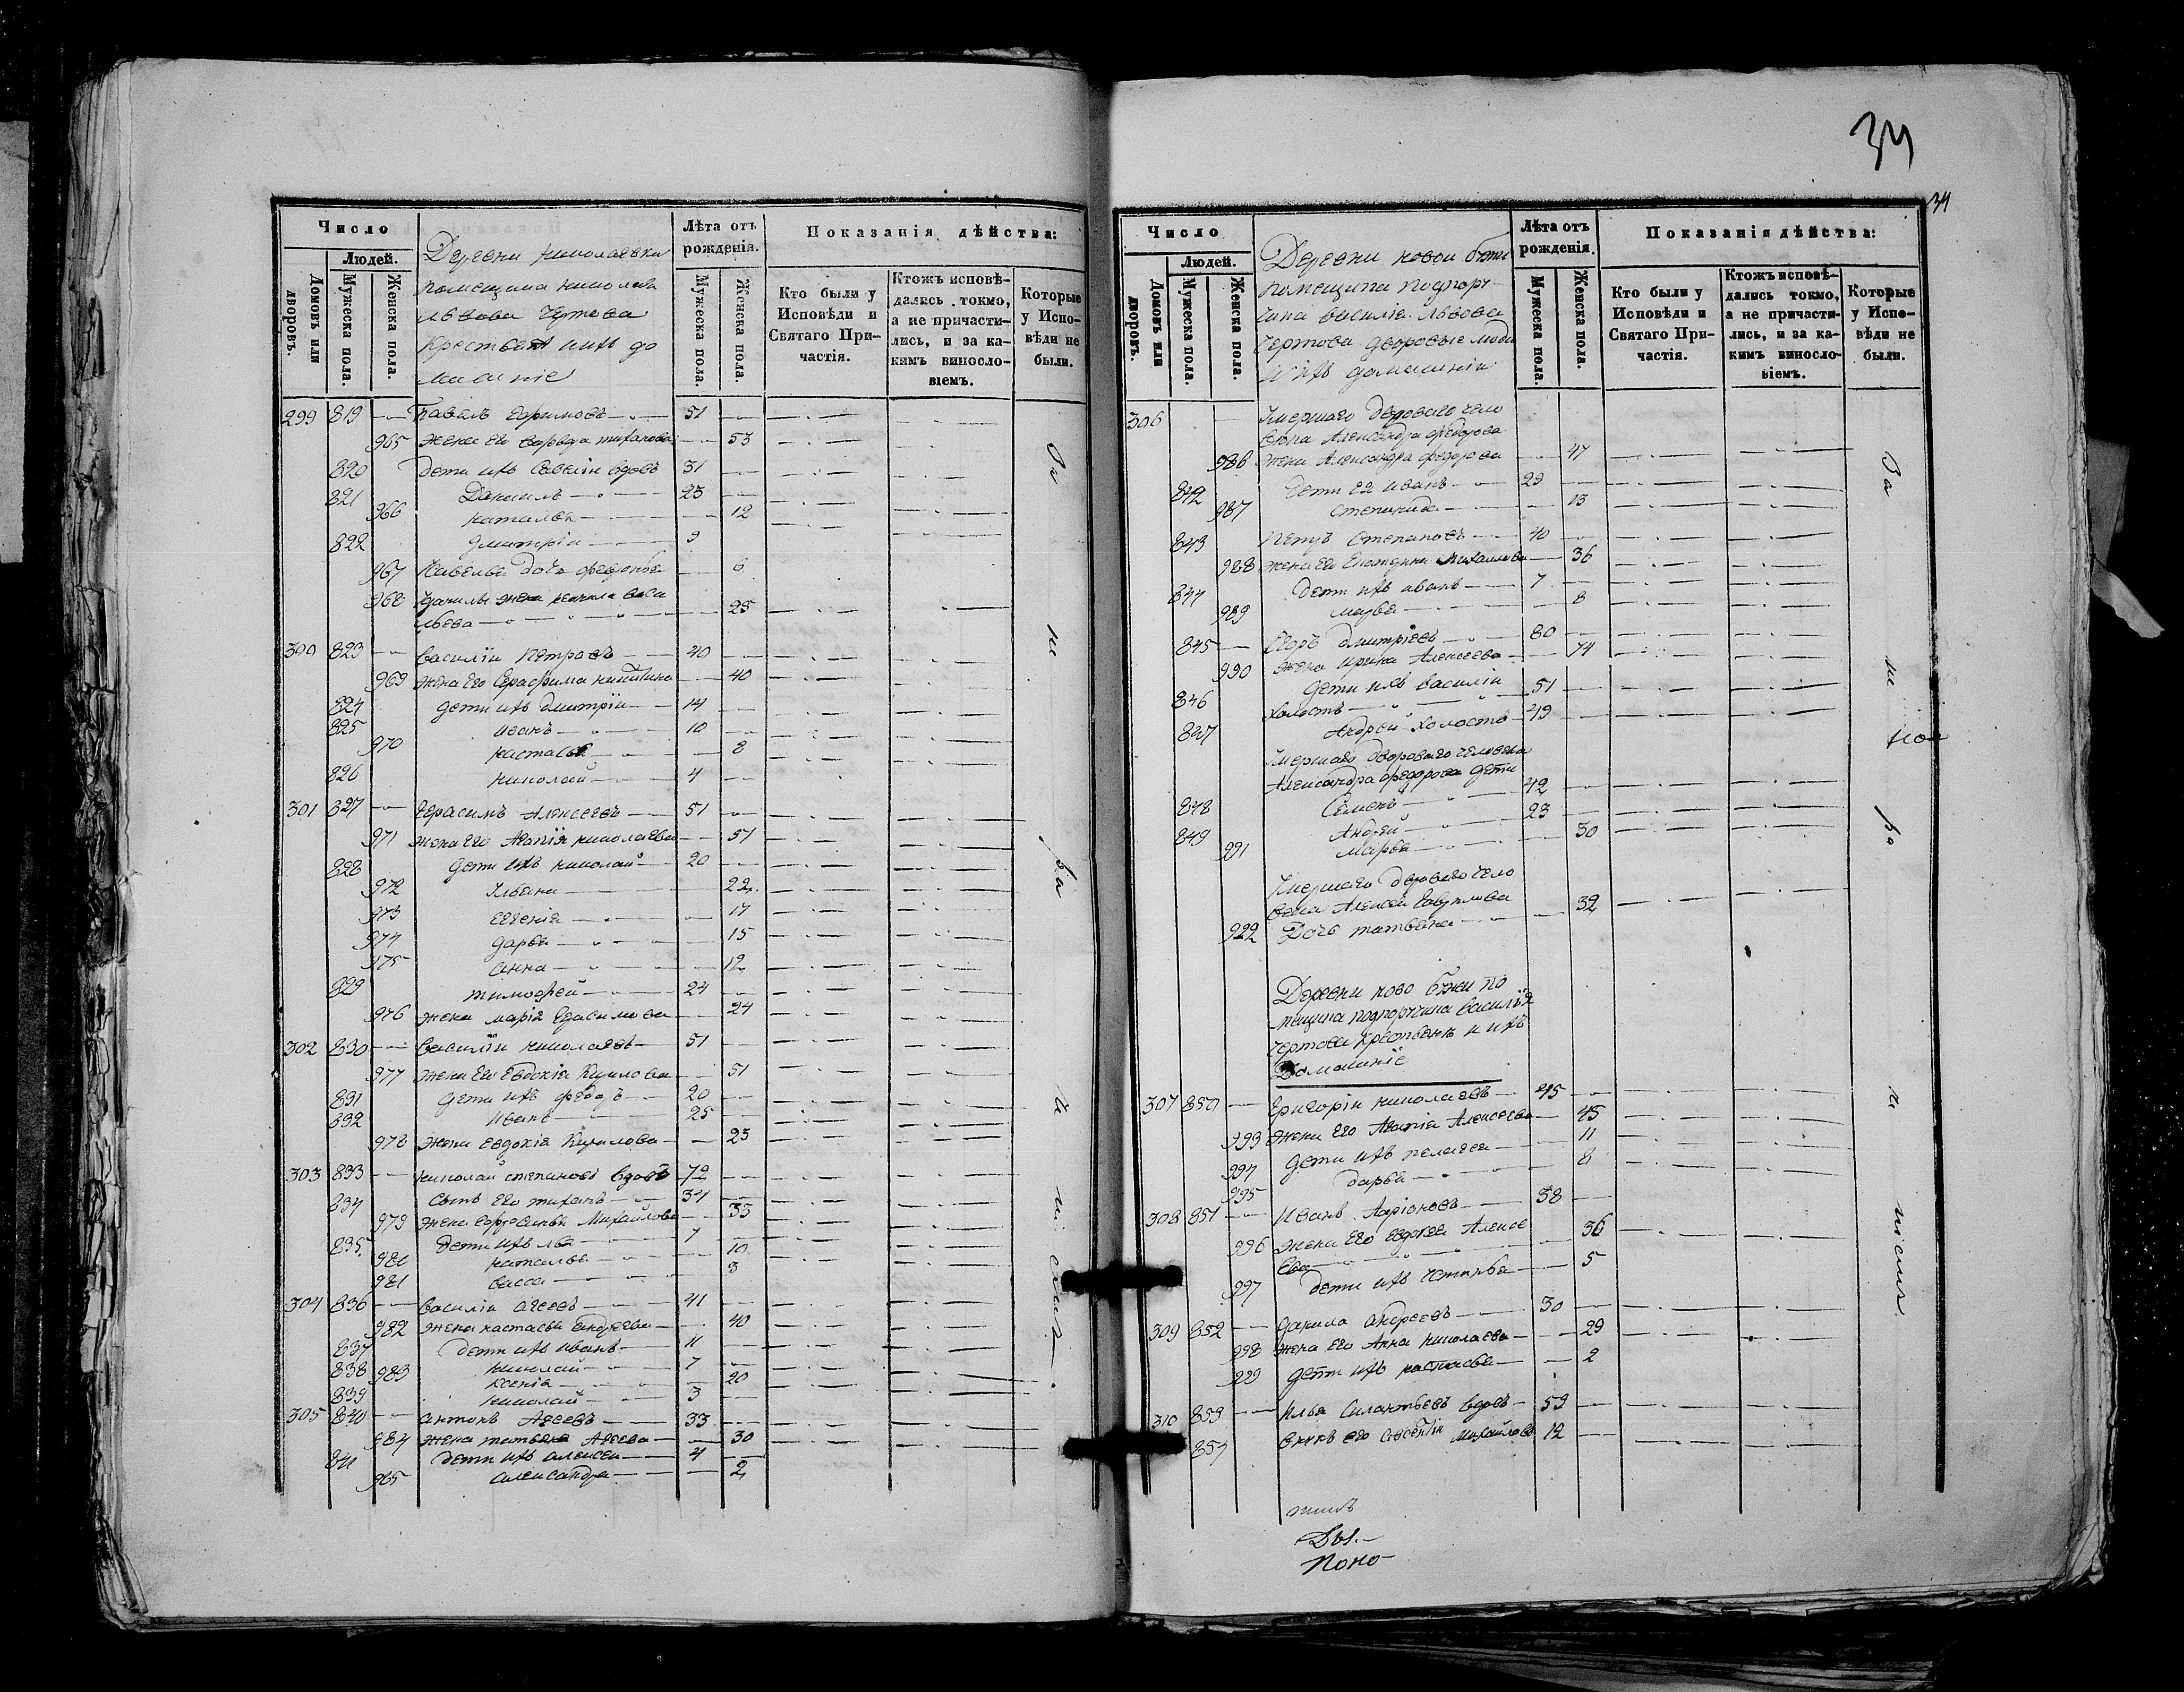 Число
Людей.
Домовъ или дворовъ.
Мужеска пола.
Женска пола.
Деревни Николаевки
помещика Николая
Львова Чертова
Крестьяне и ихъ до
машніе
Лѣта отъ рожденія.
Мужеска пола.
Женска пола.
Показанія дѣйства:
Кто были у Исповѣди и Святаго Причастія.
Ктожъ исповѣдались токмо, а не причастились, и за какимъ винословіемъ.
Которые у Исповѣди не были.
299 819 Павелъ Ефимовъ 51
965 жена его Варвара 53
820 дети ихъ Савелій вдовъ 31
821 Даниилъ 23
966 Наталья 12
822 Дмитрій 9
967 Савелья дочь Февронья 6
968 Данилы жена Васи
льева 25
300 823 Василій Петровъ 40
969 жена его Серафима Никитина 40
824 дети ихъ Дмитрій 14
825 Иванъ 10
970 Настасья 8
826 Николай 4
301 827 Герасимъ Алексеевъ 51
971 жена его Агапія Николаева 51
828 дети ихъ Николай 20
972 Ульяна 22
973 Евгенія 17
974 Дарья 15
975 Анна 12
829 Тимофей 24
976 жена Марія Герасимова 24
302 830 Василій Николаевъ 51
977 жена его Евдокія Кирилова 51
831 дети ихъ Федоръ 20
832 Иванъ 25
978 жена Евдокія Кирилова 23
303 833 Николай Степановъ вдовъ 72
834 сынъ его Тиханъ 34
979 жена Ефросинья Михайлова 33
835 дети ихъ 7
980 Наталья 10
981 Васса 3
304 836 Василій Агеевъ 41
982 жена Настасья Андреева 40
837 дети ихъ Иванъ 11
838 Николай 7
983 Ксенія 20
839 Николай 3
305 840 Антонъ Агеевъ 33
984 жена Татьяна Агеева 30
841 дети ихъ Алексей 4
985 Александра 2
За но ра ни
34
34
Число
Людей.
Домовъ или дворовъ.
Мужеска пола.
Женска пола.
Деревни новой
помещика подпору
чика Василія Львова
Чертова дворовые люди
и ихъ домашніи
Лѣта отъ рожденія.
Мужеска пола.
Женска пола.
Показанія дѣйства:
Кто были у Исповѣди и Святаго Причастія.
Ктожъ исповѣдались токмо, а не причастились, и за какимъ винословіемъ.
Которые у Исповѣди не были.
306 Умершаго двороваго чело
века Александра Федорова
986 жена Александра Федорова 47
842 дети ея Иванъ 29
987 Степанида 13
843 Петръ Степановъ 40
988 жена его Екатерина Михайлова 36
844 дети ихъ Иванъ 7
989 Марья 8
845 Егоръ Дмитріевъ 80
990 жена Ирина Алексеева 74
846 дети ихъ Василій
холостъ 51
847 Андрей холостъ 49
Умершаго двороваго человека
Александра Федорова дети
848 Семенъ 42
849 Андрей 23
991 Марья 30
Умершаго двороваго чело
века Алексея Гаврилова
922 Дочь Татьяна 32
Деревни ново по
мещика подпоручика Василія
Чертова крестьяне и ихъ
Домашніе
307 850 Григорій Николаевъ 45
993 жена его Агапія Алексеева 45
994 дети ихъ Пелагея 11
995 Дарья 8
308 851 Иванъ Ларіоновъ 38
996 жена его Евдокея Алексе
ева 36
997 дети ихъ Устинья 5
309 852 Данила Андреевъ 30
998 жена его Анна Николаева 29
999 дети ихъ Настасья 2
310 853 Илья Силантьевъ вдовъ 59
854 внукъ его Михайловъ 12
Дья.
Поно